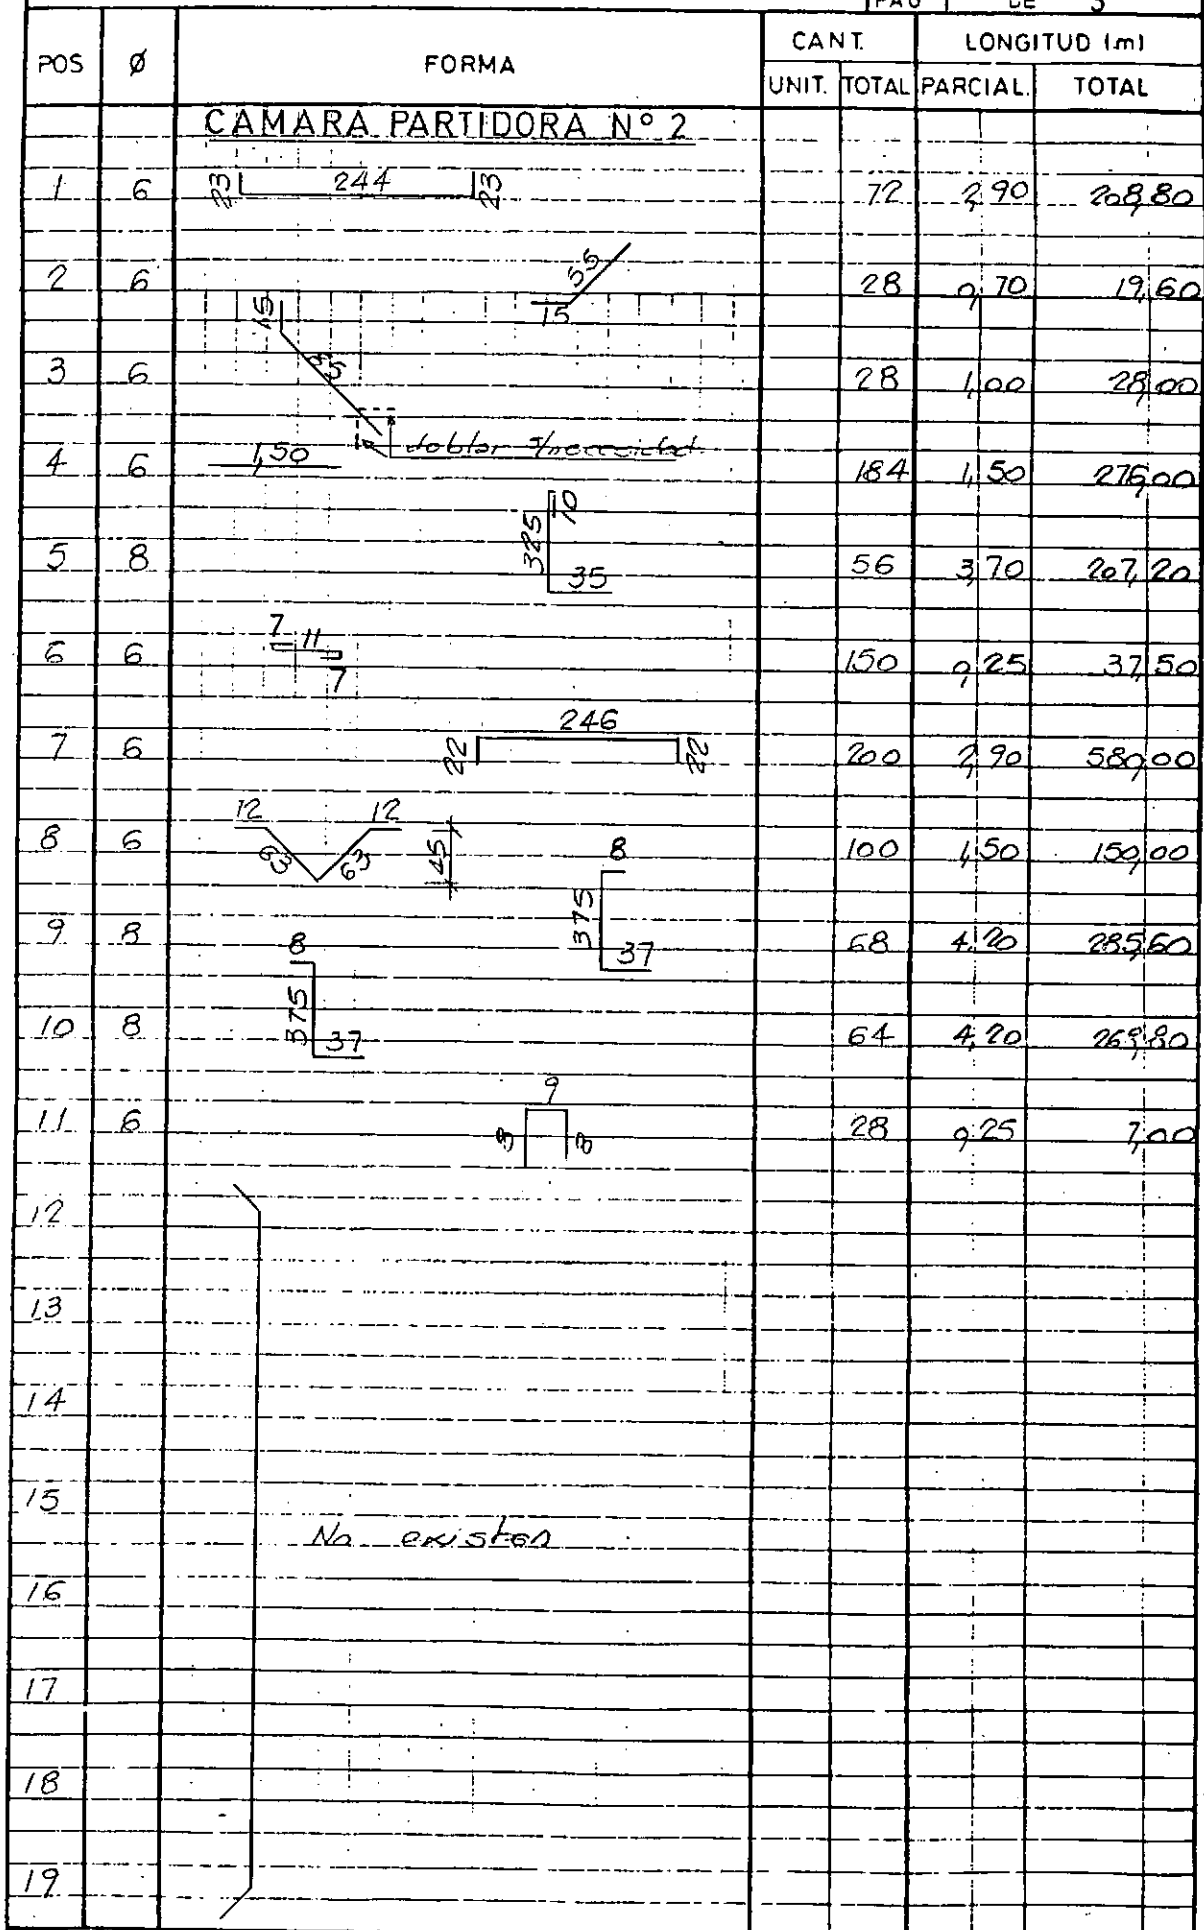 PAG 1 DE 3
POS Ø FORMA CANT. LONGITUD (m)
UNIT. TOTAL PARCIAL. TOTAL
CAMARA PARTIDORA Nº 2
1 6 23 244 23 72 2,90 208,80
2 6 55 15 28 0,70 19,60
3 6 15 85 28 1,00 28,00
doblar s/necesidad
4 6 1,50 184 1,50 276,00
5 8 325 10 35 56 3,70 207,20
6 6 7 11 7 150 0,25 37,50
7 6 22 246 22 200 2,90 580,00
8 6 12 12 63 63 45 100 1,50 150,00
9 8 8 375 37 68 4,20 285,60
10 8 8 375 37 64 4,20 268,80
11 6 9 8 8 28 0,25 7,00
12
13
14
15
No existen
16
17
18
19